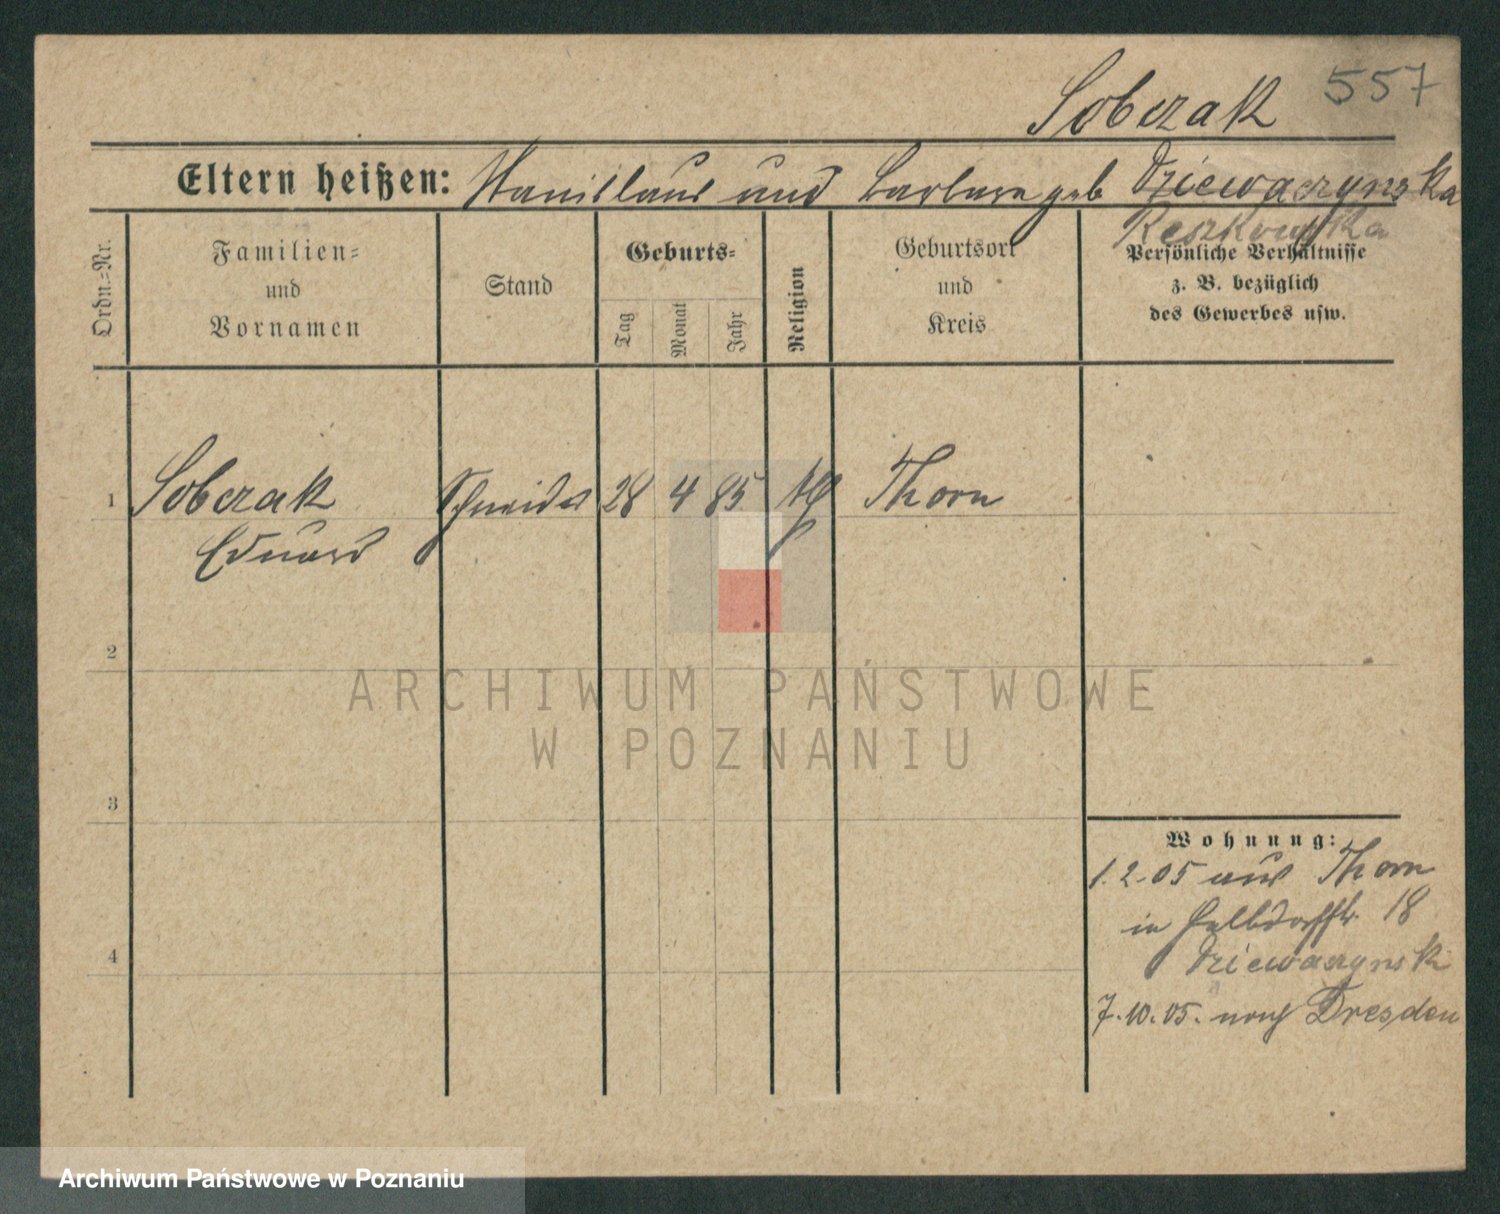 Sobczak 557
Eltern heißen: Stanislaus und Barbara geb Dziewaczynska
Reszkowska
Ordn.-Nr.
Familien-
und
Vornamen
Stand
Geburts-
Tag
Monat
Jahr
Religion
Geburtsort
und
Kreis
Persönliche Verhältnisse
z. B. bezüglich
des Gewerbes usw.
1 Sobczak Schneider 28 4 85 Thorn
Eduard
2
3
4
Wohnung:
1.2.05 aus Thorn
in 18
Dziewaczynski
7.10.05. nach Dresden
ARCHIWUM PAŃSTWOWE
W POZNANIU
Archiwum Państwowe w Poznaniu